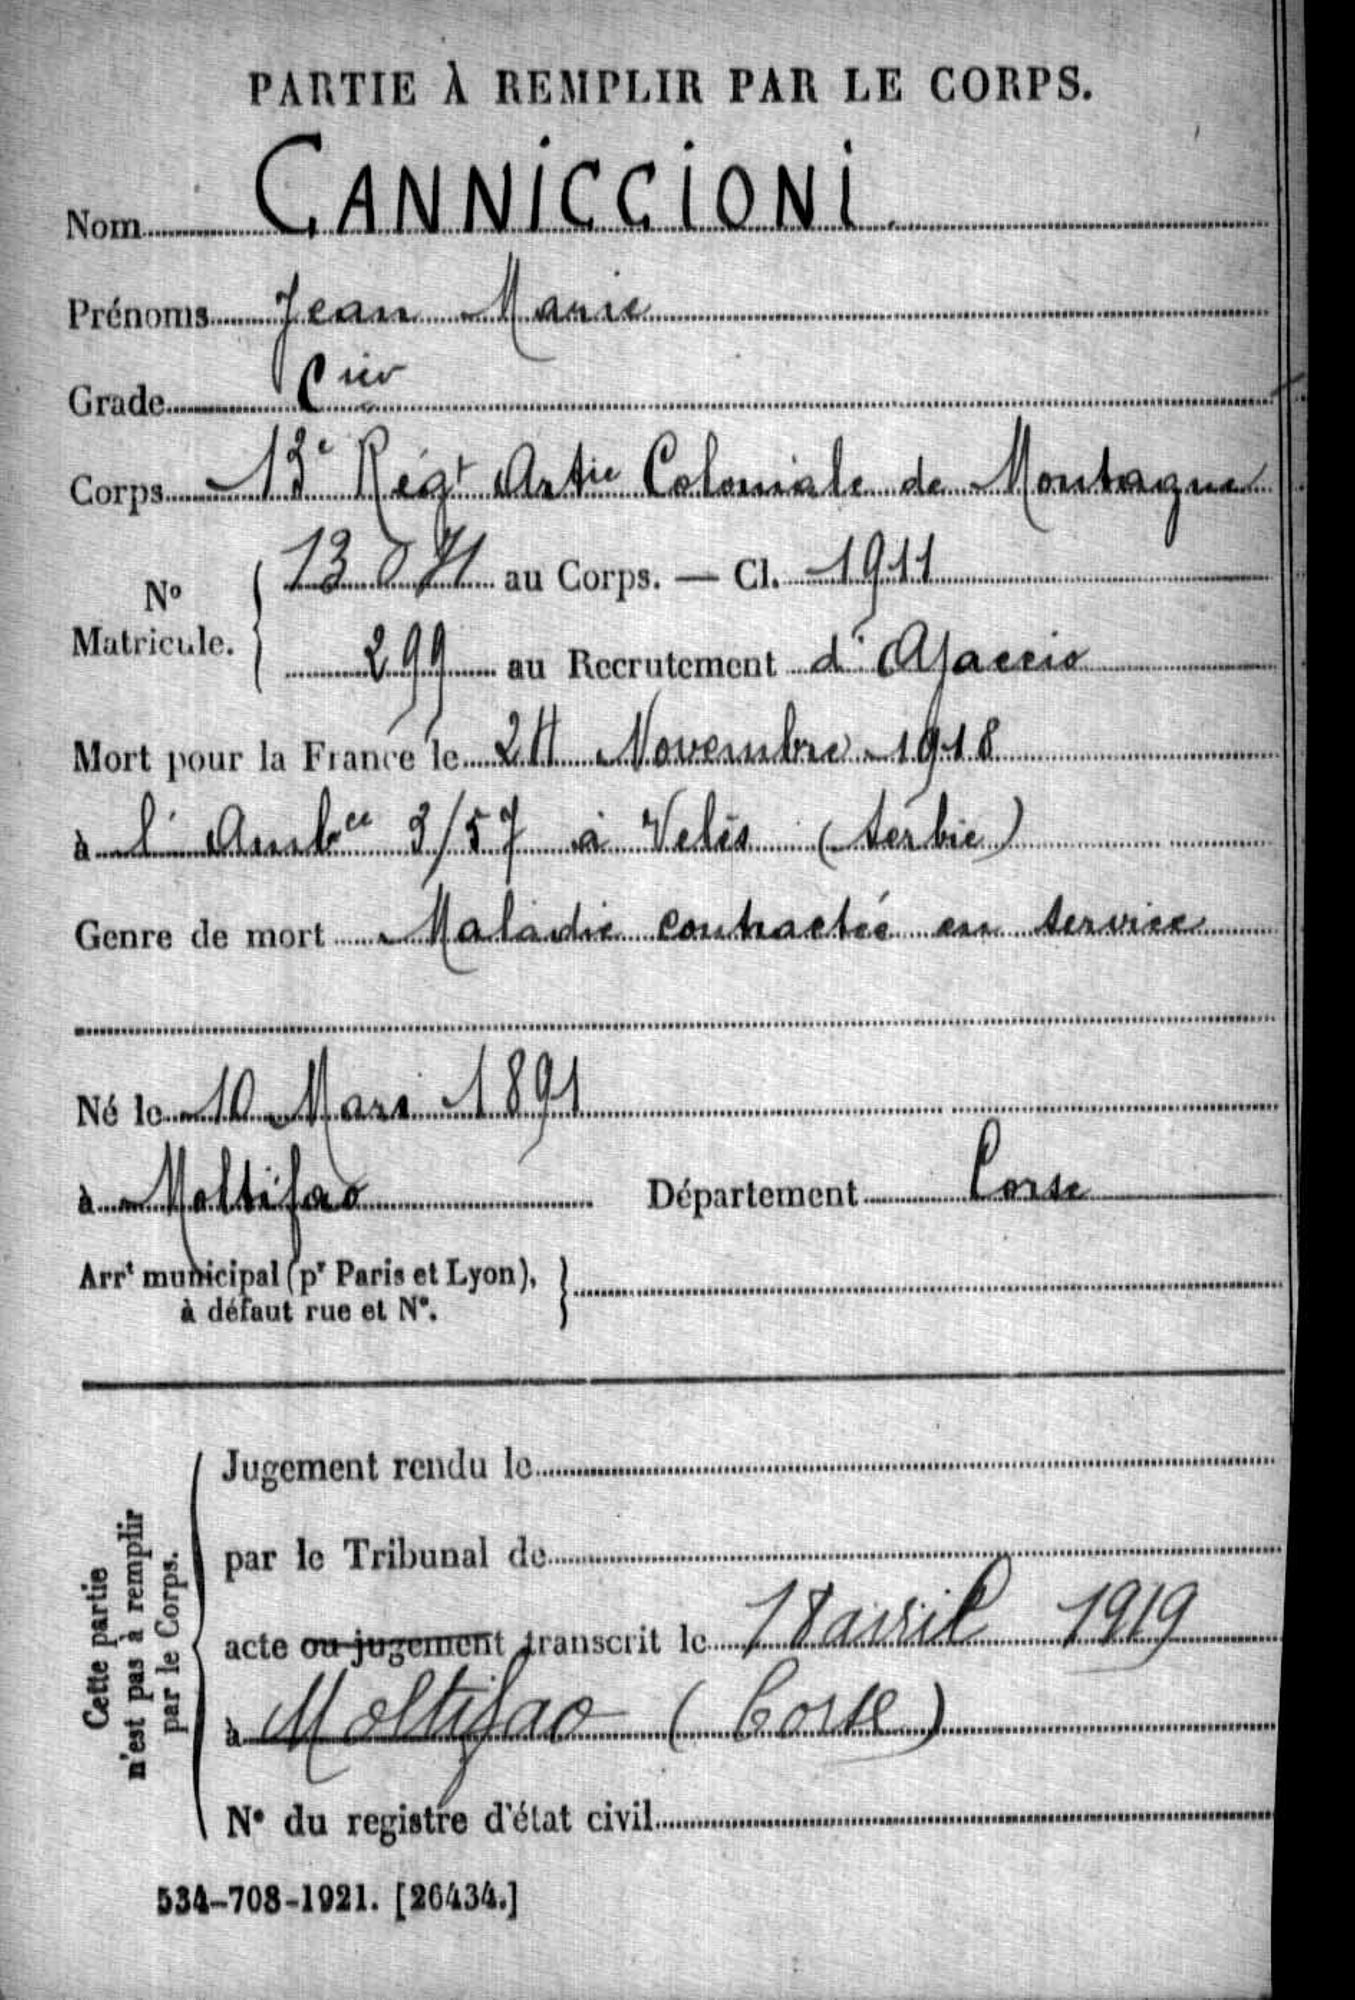 PARTIE À REMPLIR PAR LE CORPS.
Nom CANNICCIONI
Prénoms Jean Marie
Grade
Corps 13e Régt Artie Coloniale de Montagne
No Matricule. 13071 au Corps. — Cl. 1911
299 au Recrutement d'Ajaccio
Mort pour la France le 24 Novembre 1918
à l'Ambce 3/57 à Velès (Serbie)
Genre de mort Maladie contractée en service
Né le 10 Mars 1891
à Moltifao Département Corse
Arrt municipal (pr Paris et Lyon),
à défaut rue et No.
Cette partie
n'est pas à remplir
par le Corps.
Jugement rendu le
par le Tribunal de
acte ou jugement transcrit le 18 avril 1919
à Moltifao (Corse)
No du registre d'état civil
534-708-1921. [26434.]